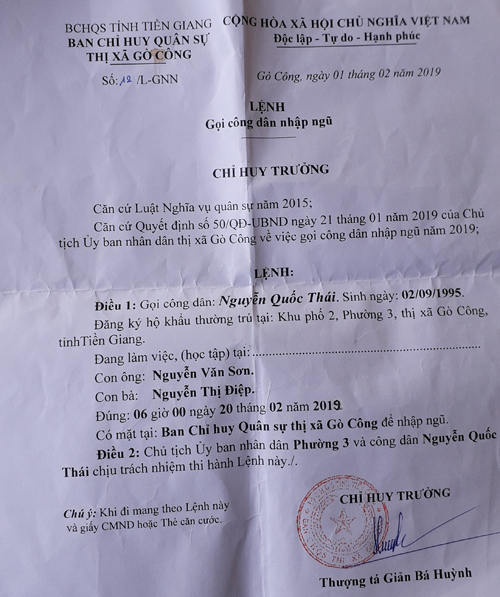 BCHQS TỈNH TIỀN GIANG
BAN CHỈ HUY QUÂN SỰ
THỊ XÃ GÒ CÔNG
Số: 12 /L-GNN
CỘNG HÒA XÃ HỘI CHỦ NGHĨA VIỆT NAM
Độc lập - Tự do - Hạnh phúc
Gò Công, ngày 01 tháng 02 năm 2019
LỆNH
Gọi công dân nhập ngũ
CHỈ HUY TRƯỞNG
Căn cứ Luật Nghĩa vụ quân sự năm 2015;
Căn cứ Quyết định số 50/QĐ-UBND ngày 21 tháng 01 năm 2019 của Chủ
tịch Ủy ban nhân dân thị xã Gò Công về việc gọi công dân nhập ngũ năm 2019;
LỆNH:
Điều 1: Gọi công dân: Nguyễn Quốc Thái. Sinh ngày: 02/09/1995.
Đăng ký hộ khẩu thường trú tại: Khu phố 2, Phường 3, thị xã Gò Công,
tỉnhTiền Giang.
Đang làm việc, (học tập) tại:..................................................
Con ông: Nguyễn Văn Sơn.
Con bà: Nguyễn Thị Điệp.
Đúng: 06 giờ 00 ngày 20 tháng 02 năm 2019
Có mặt tại: Ban Chỉ huy Quân sự thị xã Gò Công để nhập ngũ.
Điều 2: Chủ tịch Ủy ban nhân dân Phường 3 và công dân Nguyễn Quốc
Thái chịu trách nhiệm thi hành Lệnh này./.
Chú ý: Khi đi mang theo Lệnh này
và giấy CMND hoặc Thẻ căn cước.
CHỈ HUY TRƯỞNG
Thượng tá Giản Bá Huỳnh